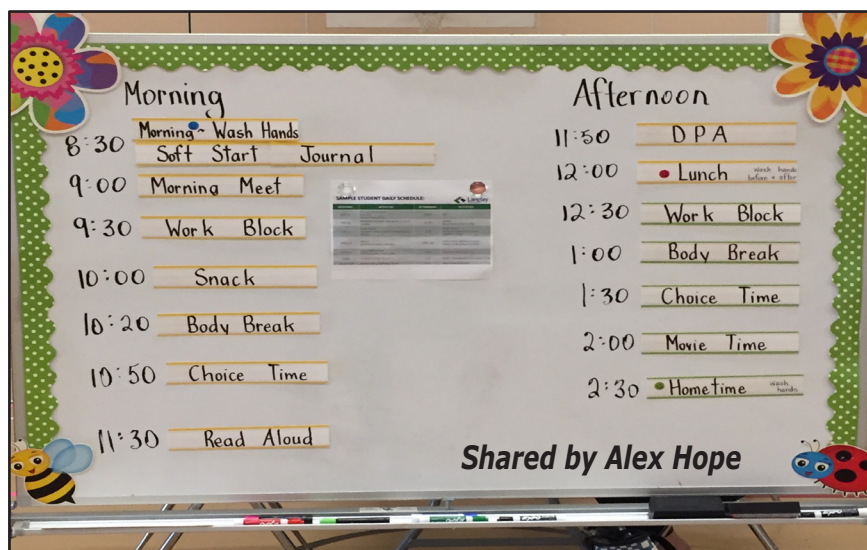 Morning
Morning ~ Wash Hands
8:30 Soft Start Journal
9:00 Morning Meet
9:30 Work Block
10:00 Snack
10:20 Body Break
10:50 Choice Time
11:30 Read Aloud
SAMPLE STUDENT DAILY SCHEDULE:
Langley
Afternoon
11:50 DPA
12:00 Lunch wash hands before + after
12:30 Work Block
1:00 Body Break
1:30 Choice Time
2:00 Movie Time
2:30 Hometime wash hands
Shared by Alex Hope